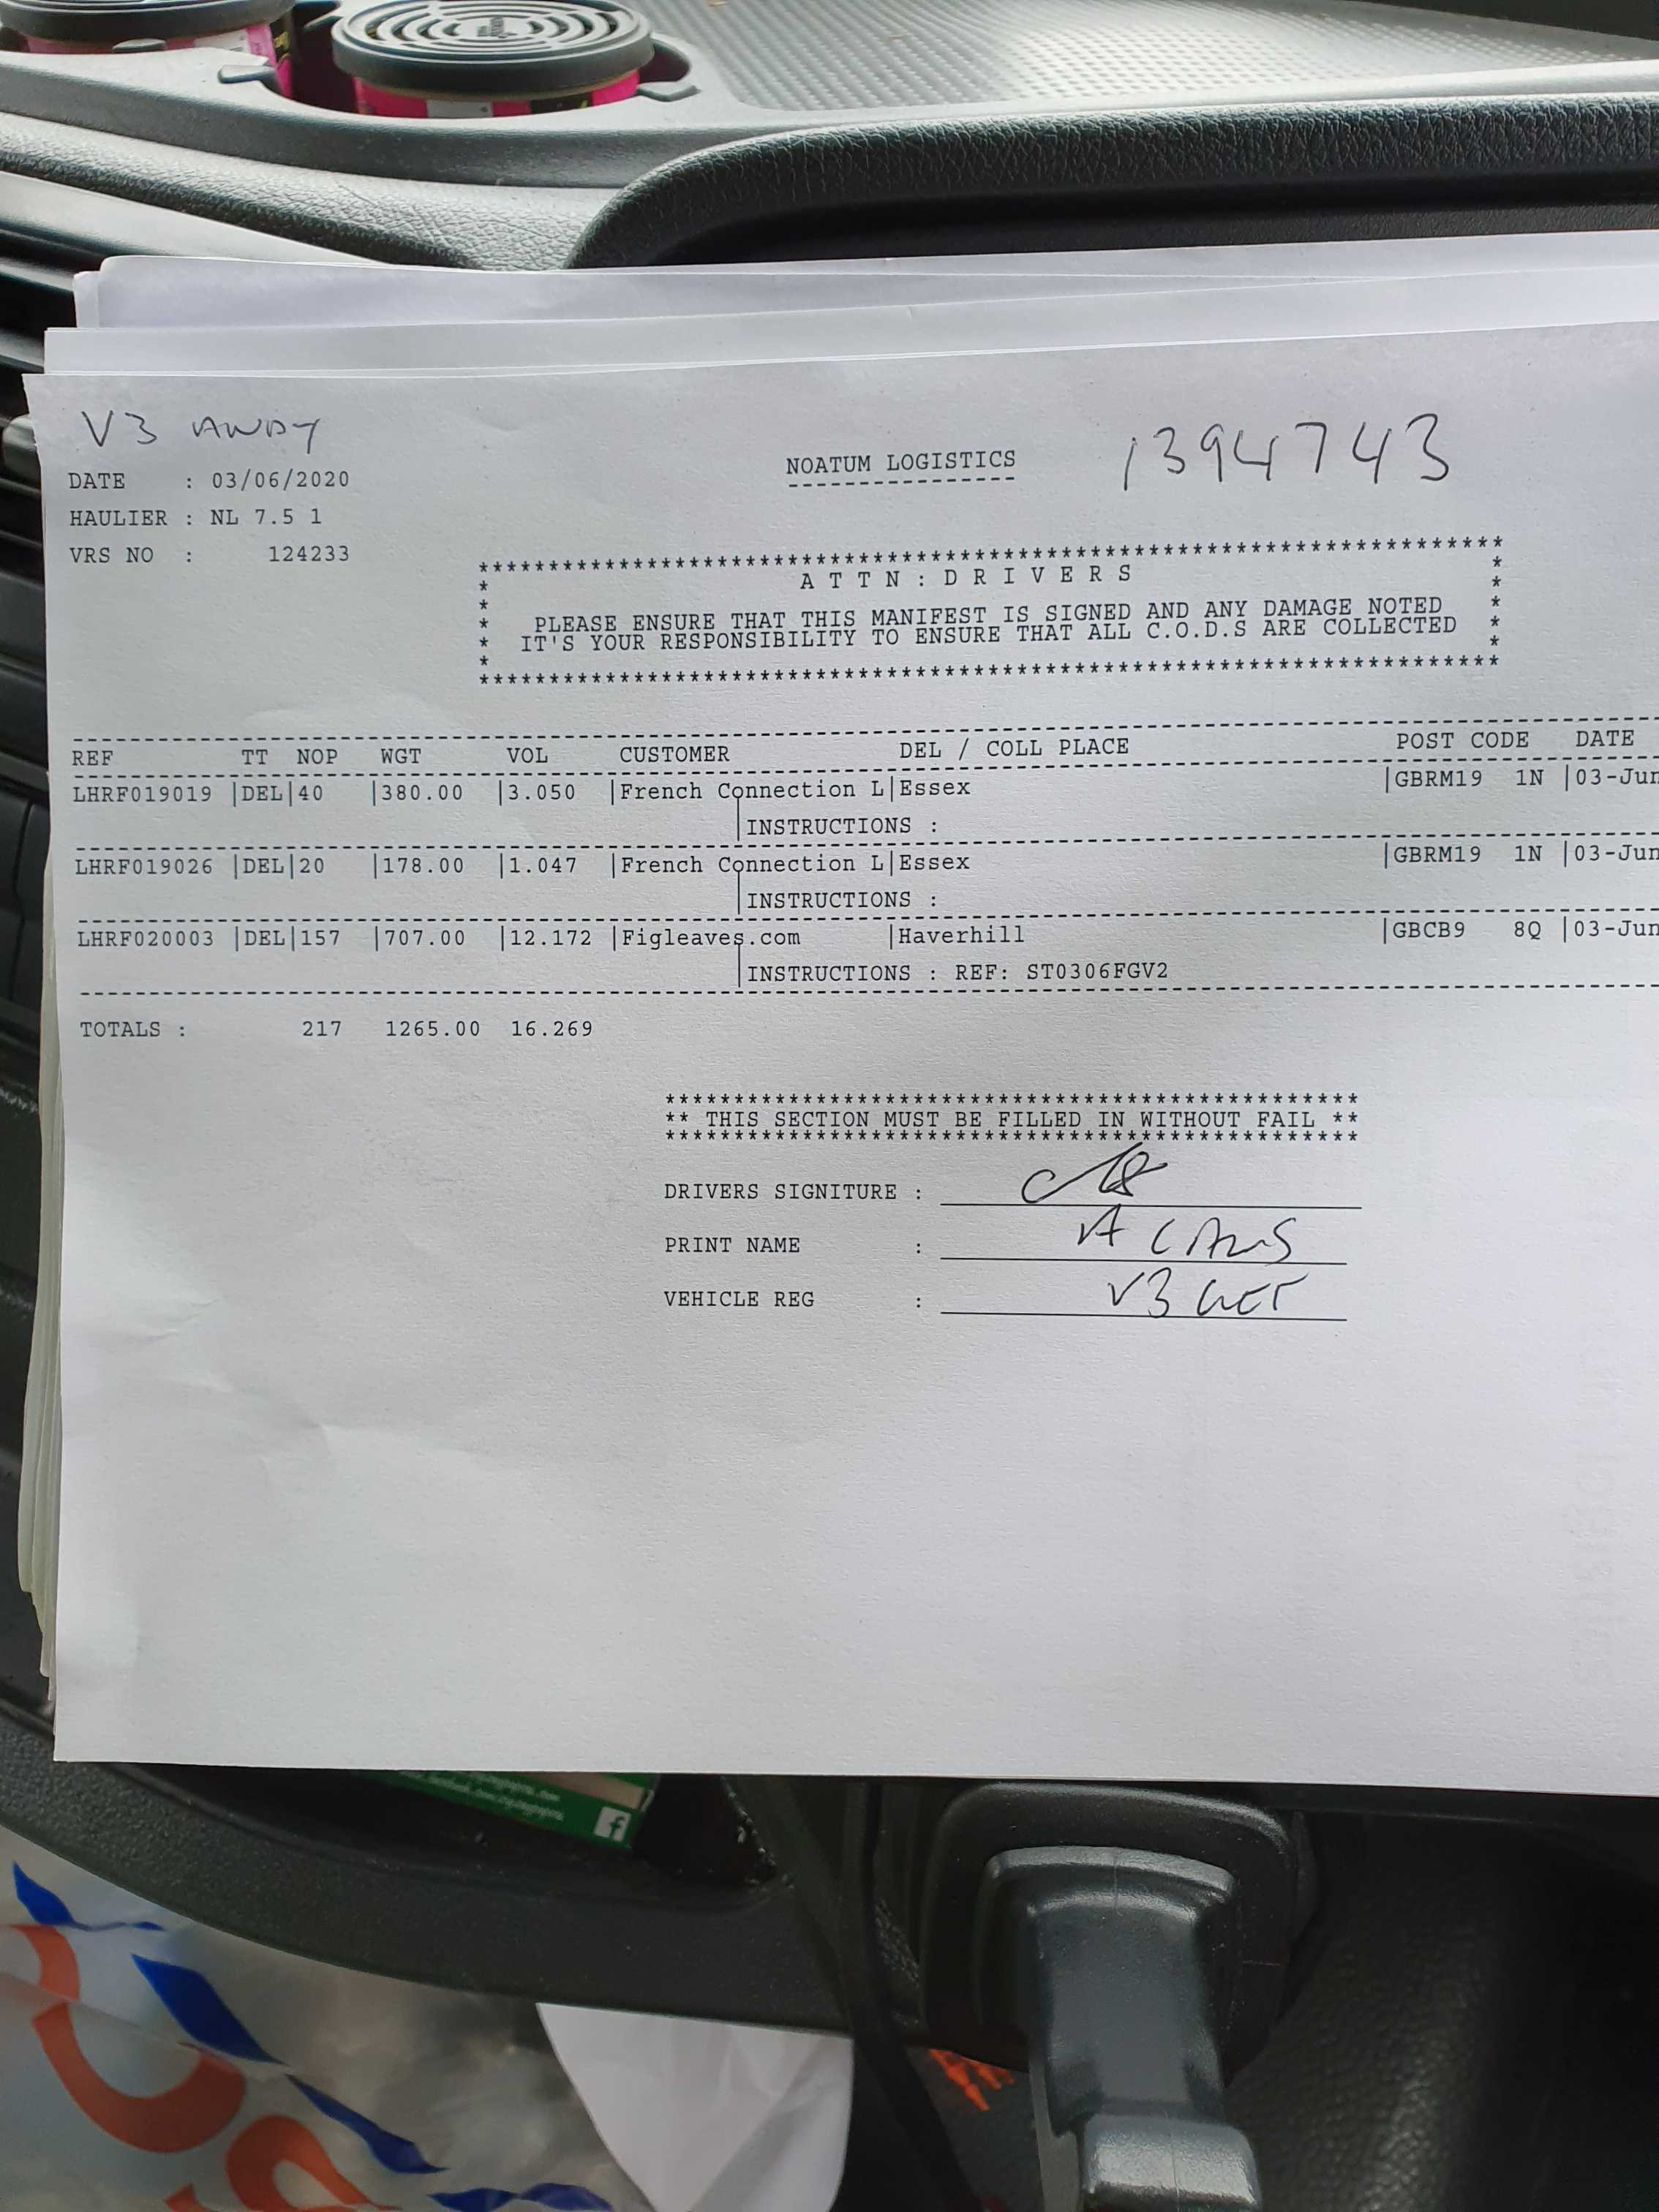 V3 ANDY
1394743
NOATUM LOGISTICS
---------------
DATE : 03/06/2020
HAULIER : NL 7.5 1
VRS NO : 124233
ATTN:DRIVERS
PLEASE ENSURE THAT THIS MANIFEST IS SIGNED AND ANY DAMAGE NOTED
IT'S YOUR RESPONSIBILITY TO ENSURE THAT ALL C.O.D.S ARE COLLECTED
REF TT NOP WGT VOL CUSTOMER DEL / COLL PLACE POST CODE DATE
LHRF019019 |DEL|40 |380.00 |3.050 |French Connection L|Essex |GBRM19 1N |03-Jun
|INSTRUCTIONS :
LHRF019026 |DEL|20 |178.00 |1.047 |French Connection L|Essex |GBRM19 1N |03-Jun
|INSTRUCTIONS :
LHRF020003 |DEL|157 |707.00 |12.172 |Figleaves.com |Haverhill |GBCB9 8Q |03-Jun
|INSTRUCTIONS : REF: ST0306FGV2
TOTALS : 217 1265.00 16.269
** THIS SECTION MUST BE FILLED IN WITHOUT FAIL **
DRIVERS SIGNITURE :
PRINT NAME : A
VEHICLE REG : V3